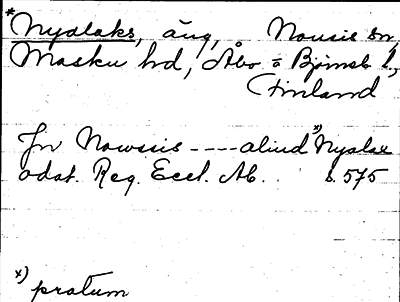 *Nydlaks, äng, Nousis sn,
Masku hd, Åbo o Bjørneb l.,
Finland
Jn Nowsis ---- aliud x) Nyslax
odat. Reg. Eccl. Ab. s. 575
x) pratum